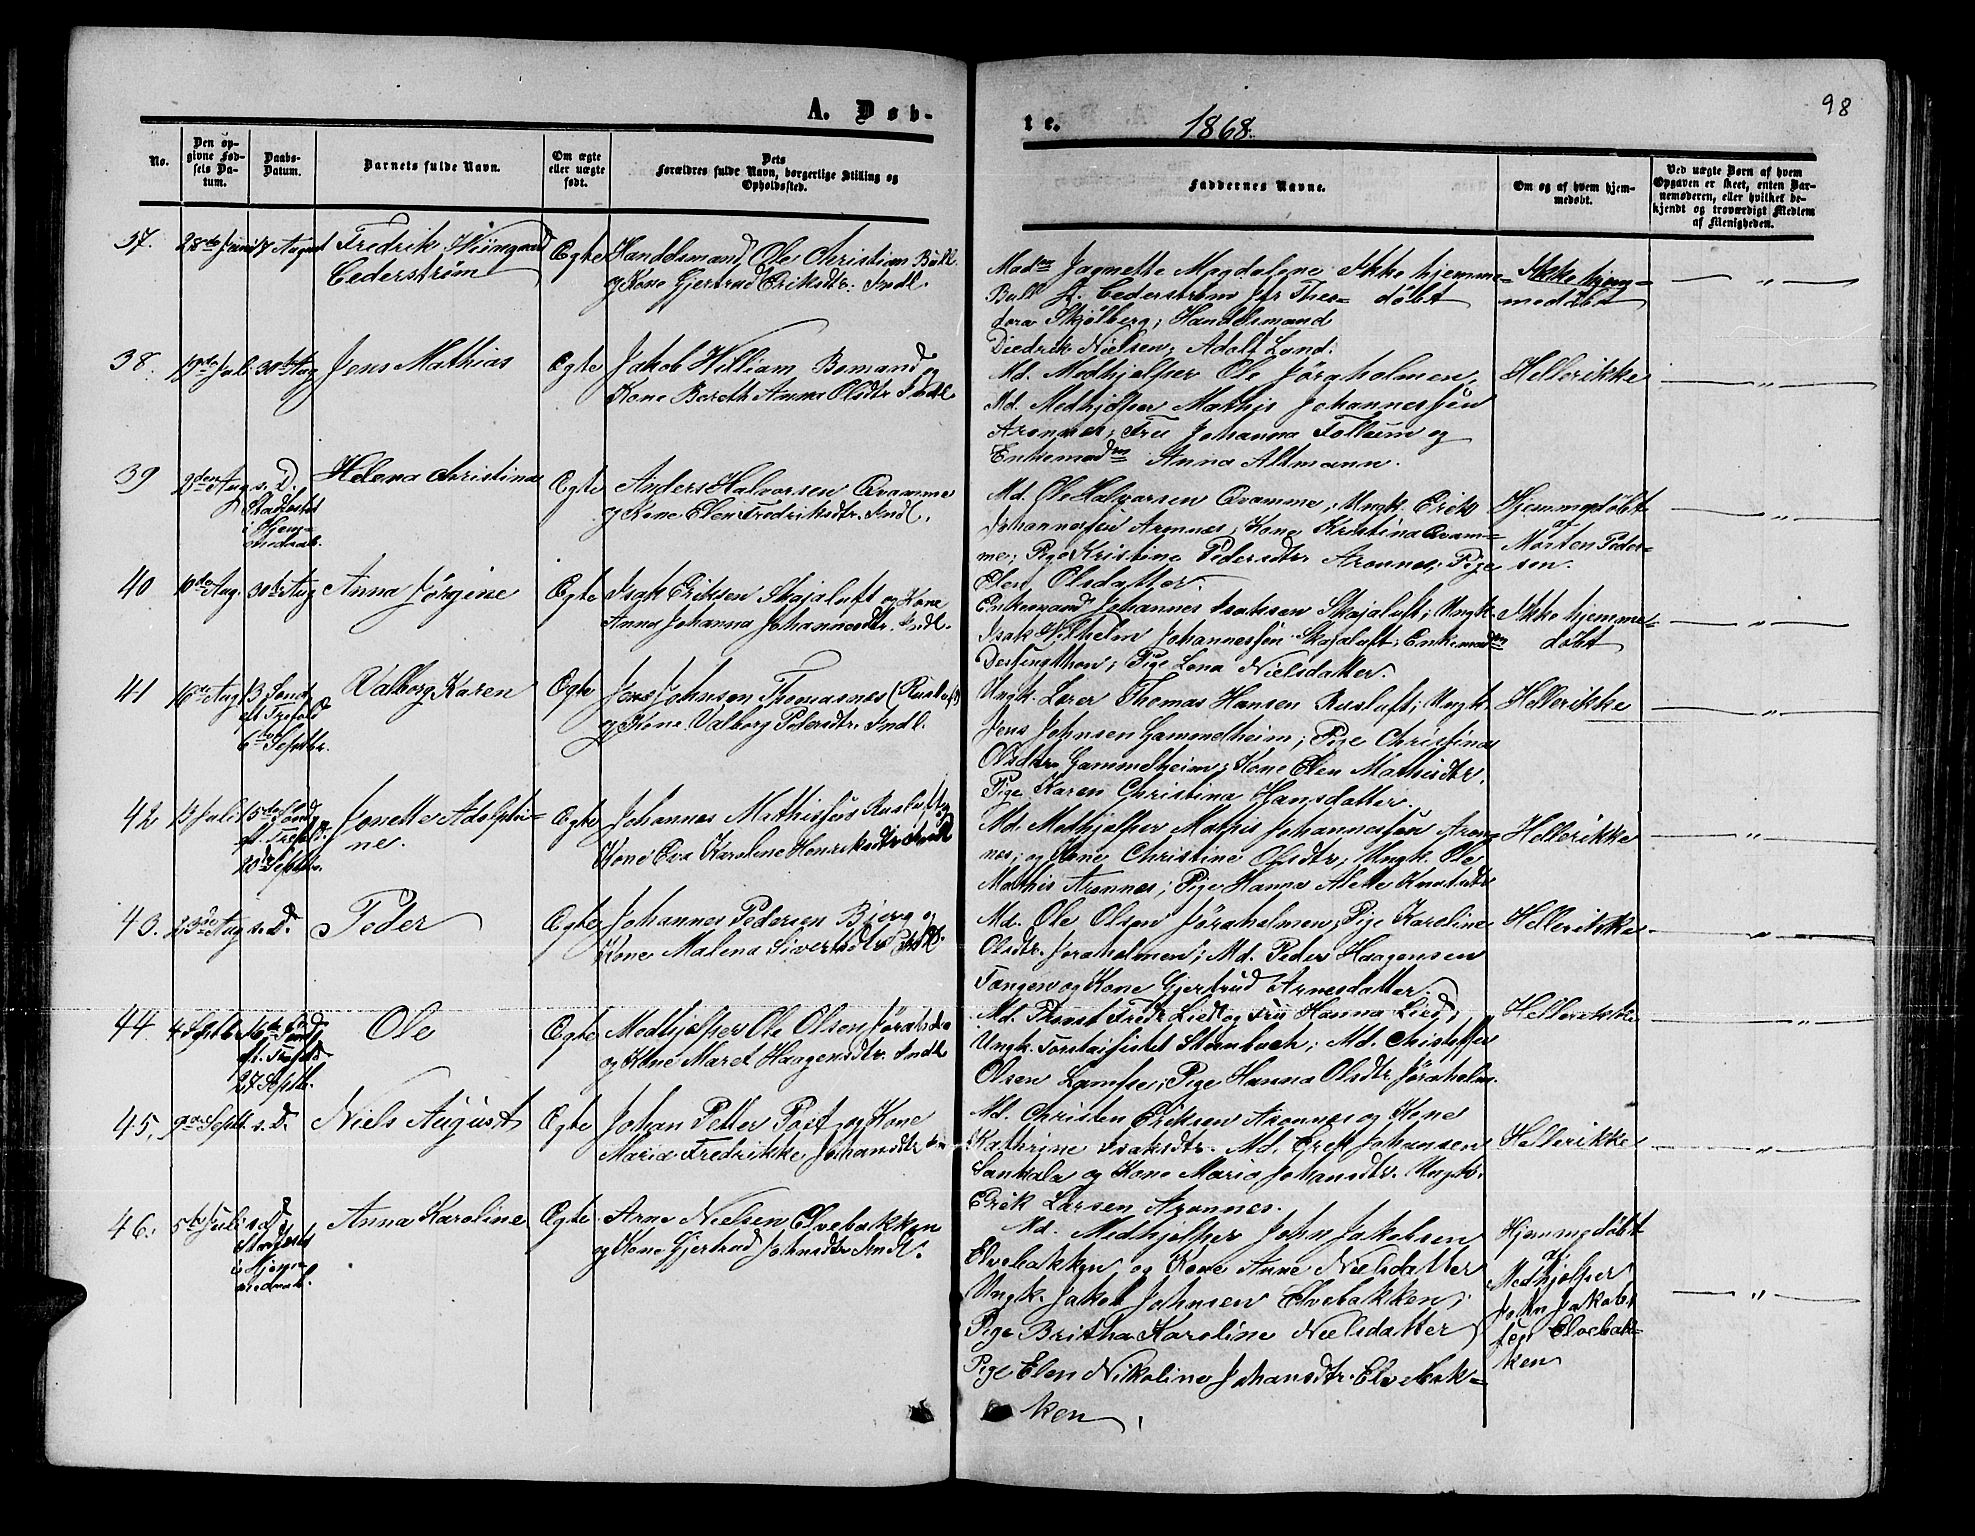 A. Døb-
te.
1868.
98
No.
Den op-
givne Fød-
sels Da-
tum.
Daabs-
Datum.
Barnets fulde Navn.
Om ægte
eller uægte
født.
Dets
Forældres fulde Navn, borgerlige Stilling og
Opholdssted.
Faddernes Navne.
Om og af hvem hjem-
medøbt.
Ved uægte Børn af hvem
Opgaven er skeet, enten Bar-
nemoderen, eller hvilket be-
kjendt og troværdigt Medlem
af Menigheden.
37. 28de Juni 17 August Fredrik
Cederstrøm
Ægte Handelsmand Ole Christian Bull
og Kone Gjertrud Eriksdtr. Indl.
Madm Jagnette Magdalene
Bull J. Cederstrøm Jfr Theo-
dora Skjølberg; Handelsmand
Diedrik Nielsen; Adolf Lund.
Ikke hjemme-
døbt
Ikke hjem-
medøbt
38. 19de Juli 30te Aug Jens Mathias
Ægte Jakob William Bomand og
Kone Bereth Anna Olsdtr Indl
Md. Medhjelper Ole Jøraholmen,
Md. Medhjelper Mathis Johannessen
Aronnes; Fru Johanna Follum og
Enkemadm Anna Altmann.
Hellerikke
39 2den Aug s. D.
Stadfestet
i Hjem-
Helena Christina
Ægte Anders Halvorsen Qvamme
og Kone Elen Fredriksdtr. Indl.
Md. Ole Halvorsen Qvamme, Ungk. Erik
Johannessen Aronnes; Kone Kristina Qvam-
me; Pige Kristine Pedersdtr Aronnes; Pige
Elen Olsdatter.
Hjemmedøbt
af
Morten Peder-
sen.
40 10de Aug. 30te Aug Anna Jørgine
Ægte Isak Eriksen Skajaluft og Kone
Anna Johanna Johannesdtr. Indl.
Enkemand Johannes Isaksen Skajaluft; Ungk.
Isak Vilhelm Johannessen Skajaluft; Enkemadm
Pige Lena Nielsdatter.
Ikke hjemme-
døbt
41 16de Aug 13 Sønd
ft. Trefold
6te Septbr.
Valborg Karen
Ægte Jens Johnsen Thomasnes (Rusluft)
og Kone Valborg Pedersdtr. Indl.
Ungk. Lærer Thomas Hansen Rusluft; Ungk.
Jens Johnsen Gammelheim; Pige Christina
Olsdtr Gammelheim; Kone Elen Mathisdtr.
Pige Karen Christina Hansdatter.
Hellerikke
42 13 Juli 15de Sønd
ft. Trefold.
20de Septbr.
Jonette Adolphi-
ne.
Ægte Johannes Mathissen Rusluft og
Kone Eva Karoline Henriksdtr Indl
Md. Medhjelper Mathis Johannessen Aron-
nes; og Kone Christine Olsdtr; Ungk. Ole
Mathis Aronnes; Pige Hanna Alette Knutsdtr
Hellerikke
43. 23de Aug s. D. Peder
Ægte Johannes Pedersen Bjerg og
Kone Malena Sivertsdtr Indl.
Md. Ole Olsen Jøraholmen; Pige Karoline
Olsdtr. Jøraholmen; Md. Peder Haagensen
Tangen og Kone Gjertrud Arnesdatter
Hellerikke
44. 4 Septbr 16de Sønd
ft. Trefold
27 Septb.
Ole
Ægte Medhjelper Ole Olsen
og Kone Maret Haagensdtr. Indl
Md. Provst Fredr. Lied og Fru Hanna Lied;
Ungk. Steinbach; Md. Christoffer
Olsen Lampe; Pige Hanna Olsdtr Jøraholm.
Hellerikke
45. 9de Septb. s. D. Niels August
Ægte Johan Petter Post og Kone
Maria Fredrikke Johansdtr
Md. Christen Eriksen Aronnes og Kone
Kathrine Isaksdtr. Md. Johansen
og Kone Maria Johansdtr. Ungk.
Erik Larsen Aronnes.
Hellerikke
46. 5te Juli s. d.
i Hjem-
Anna Karoline
Ægte Arne Nielsen Elvebakken
og Kone Gjertrud Johnsdtr Indl.
Md. Medhjelper John Jakobsen
Elvebakken og Kone Anne Nielsdatter
Ungk. Jakob Johnsen Elvebakken;
Pige Britha Karoline Nielsdatter
Pige Elen Nikoline Johansdtr. Elvebak-
ken.
Hjemmedøbt
af
Medhjelper
John Jakob-
sen Elvebak-
ken